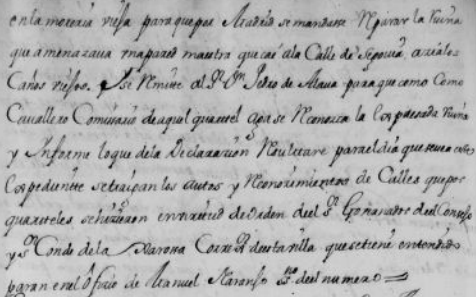 en la moreria viefa para que por Madrid se mandase Reparar la Ruina
que amenazava una pared maestra que caé a la Calle de Segovia, a res les
Caños viejos. Y se Remite al Sr. Dn. Pedro de Alava para que como Como
Cavallero Comisario de aquel quartel Reconozca la expresada Ruina
y Informe lo que de la Declarazion Resultare para el dia que se vea este
Expediente se traigan los autos y Reconozimientos de Calles que por
quarteles se hizieron en virtud de orden del Sr. Governador del Consejo
y Sr. Conde de la Correxr. de esta villa que se tiene entendido
paran en el ofizio de Manuel Naranjo ss.no del numero